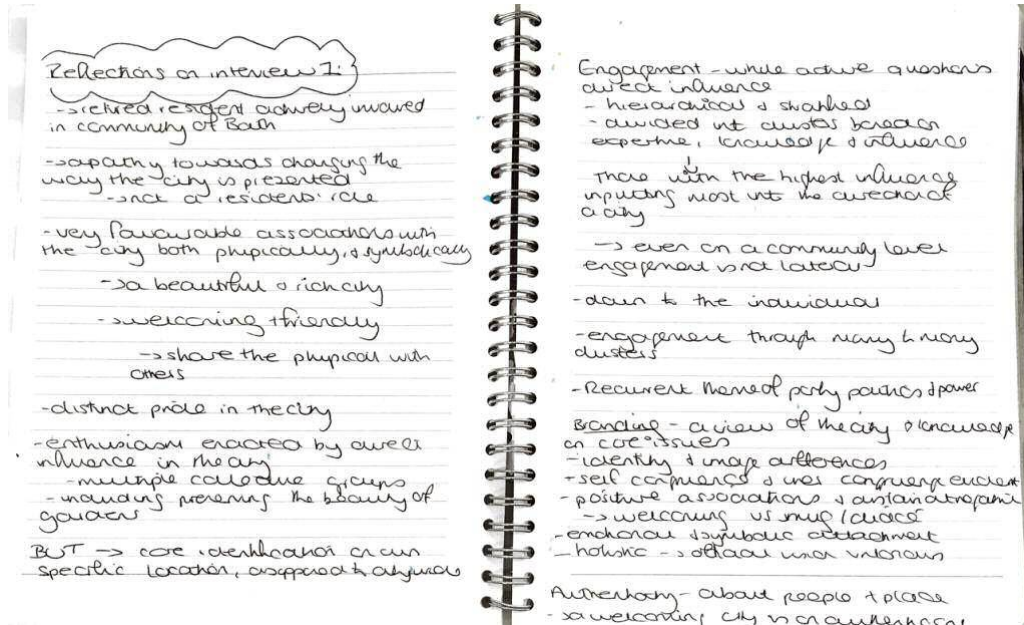 Reflections on interview 1:
→ retired resident actively involved
in community of Bath
→ apathy towards changing the
way the city is presented
→ not a residents' role
- very favourable associations with
the city both physically, & symbolically
→ a beautiful & rich city
→ welcoming + friendly
→ share the physical with
others
- distinct pride in the city
- enthusiasm enacted by direct
influence in the city
- multiple collective groups
- including preserving the beauty of
gardens
BUT → core identification on own
specific location, as opposed to city wide
Engagement - while active questions
direct influence
- hierarchical & stratified
- divided into clusters based on
expertise, knowledge & influence
↓
Those with the highest influence
inputting most into the direction of
a city
→ even on a community level
engagement is not lateral
- down to the individual
- engagement through many to many
clusters
- Recurrent theme of party politics & power
Branding - a view of the city & knowledge
on core issues
- identity & image differences
+ self congruence & congruence evident
- positive associations &
→ welcoming vs smug /
- emotional & symbolic attachment
- holistic →
Authenticity - about people + place
→ a welcoming city is an